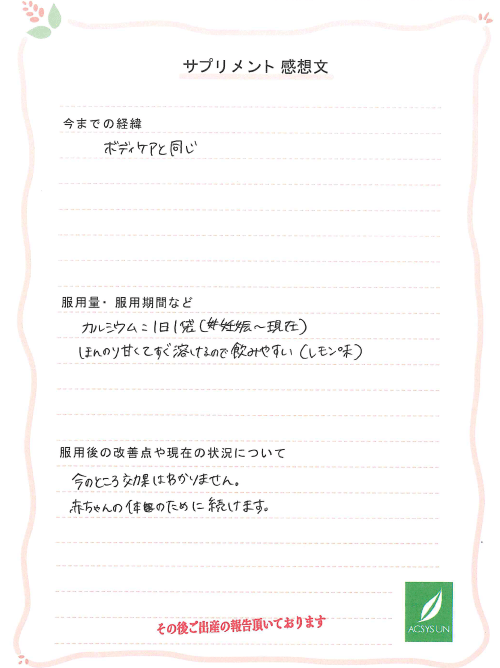 サプリメント 感想文
今までの経緯
ボディケアと同じ
服用量・服用期間など
カルシウム:1日1袋(妊娠~現在)
ほんのり甘くてすぐ溶けるので飲みやすい(レモン味)
服用後の改善点や現在の状況について
今のところ効果はわかりません。
赤ちゃんの体のために続けます。
その後ご出産の報告頂いております
ACSYSUN